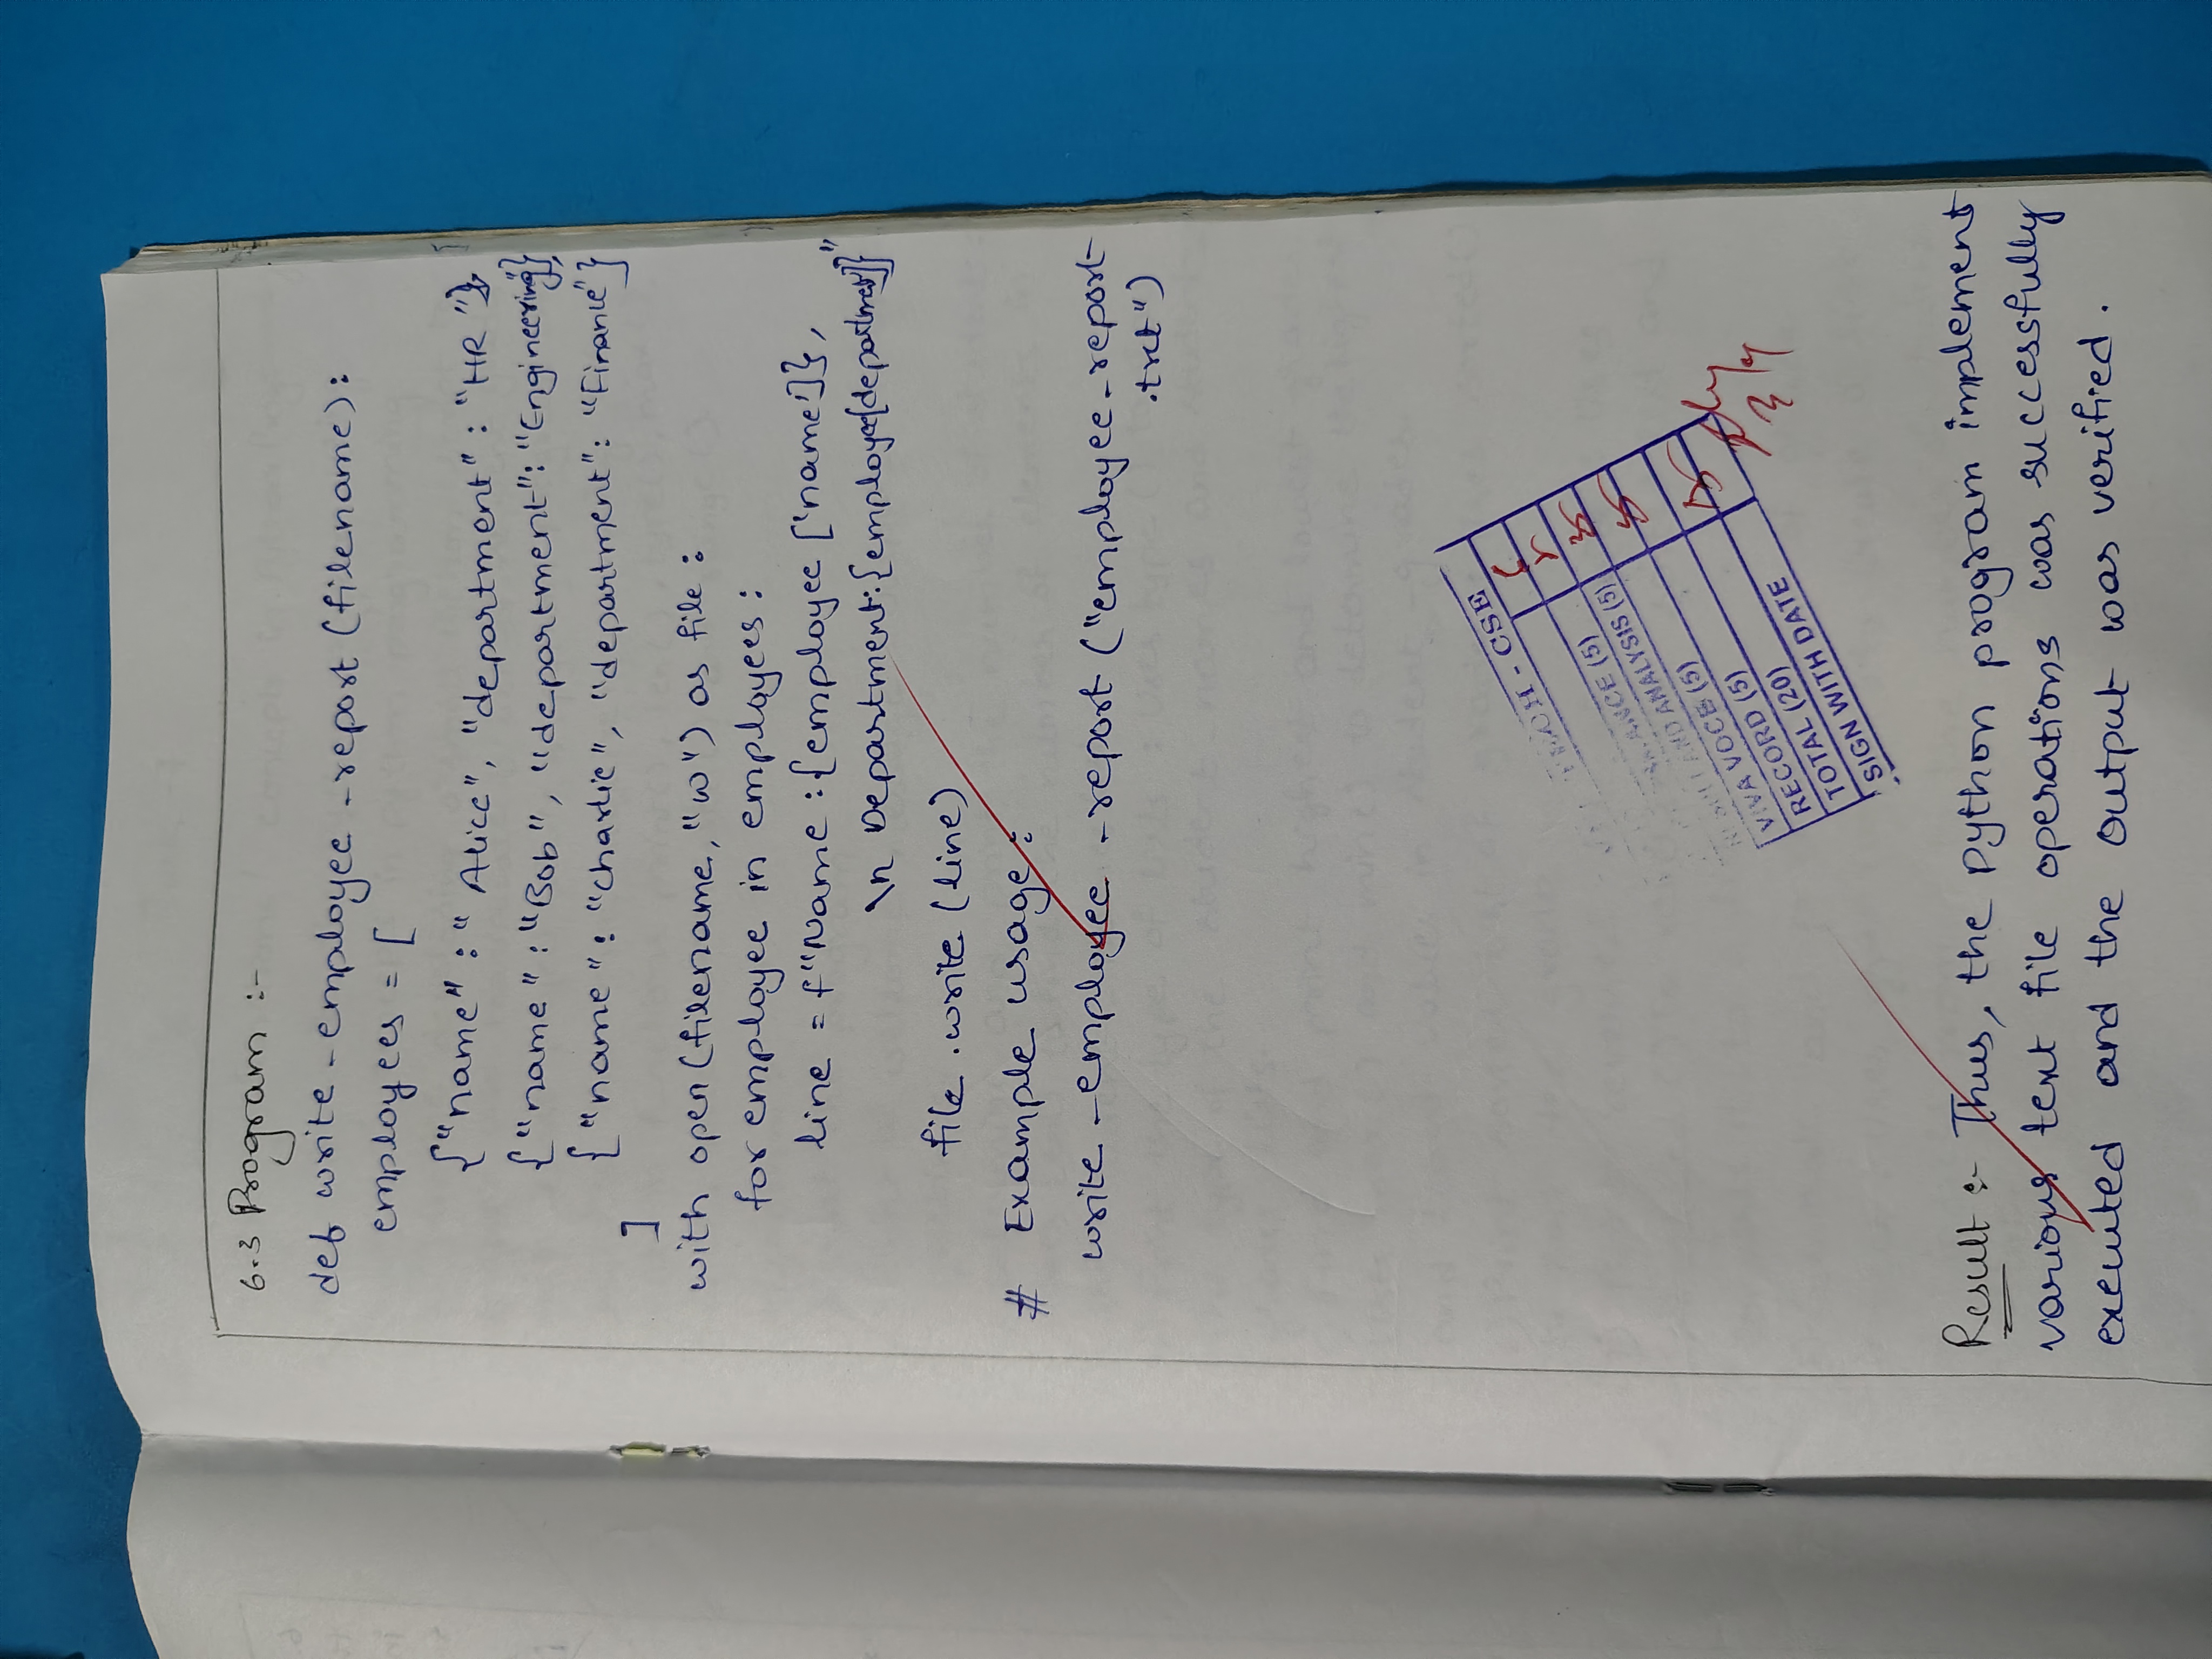 6.3 Program :-
def write-employee-report (filename):
employees = [
{"name" : "Alice", "department" : "HR"},
{"name" : "Bob", "department": "Engineering"},
{"name" : "Charlie", "department": "Finance"}
]
with open (filename, "w") as file :
for employee in employees :
line = f"Name : {employee ['name']},
\n Department: {employee[department']}"
file .write (line)
# Example usage :
write-employee-report ("employee-report
.txt")
- CSE
ANALYSIS (5)
VIVA VOCE (5)
RECORD (5)
TOTAL (20)
SIGN WITH DATE
15
Result :- Thus, the python program implement
various text file operations was successfully
executed and the output was verified.